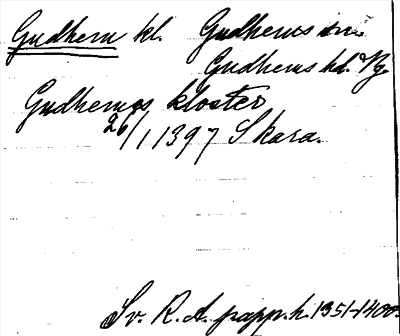 Gudhem kl. Gudhems sn.
Gudhems hd. Vg.
Gudhems kloster
26/1 1397 Skara.
Sv. R. A. papp. h. 1351-1400.